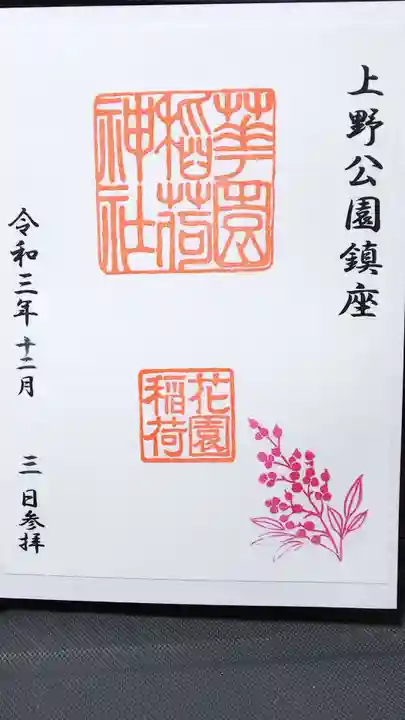 上野公園鎮座
華園
稲荷
神社
花園
稲荷
令和三年十二月 三日参拝